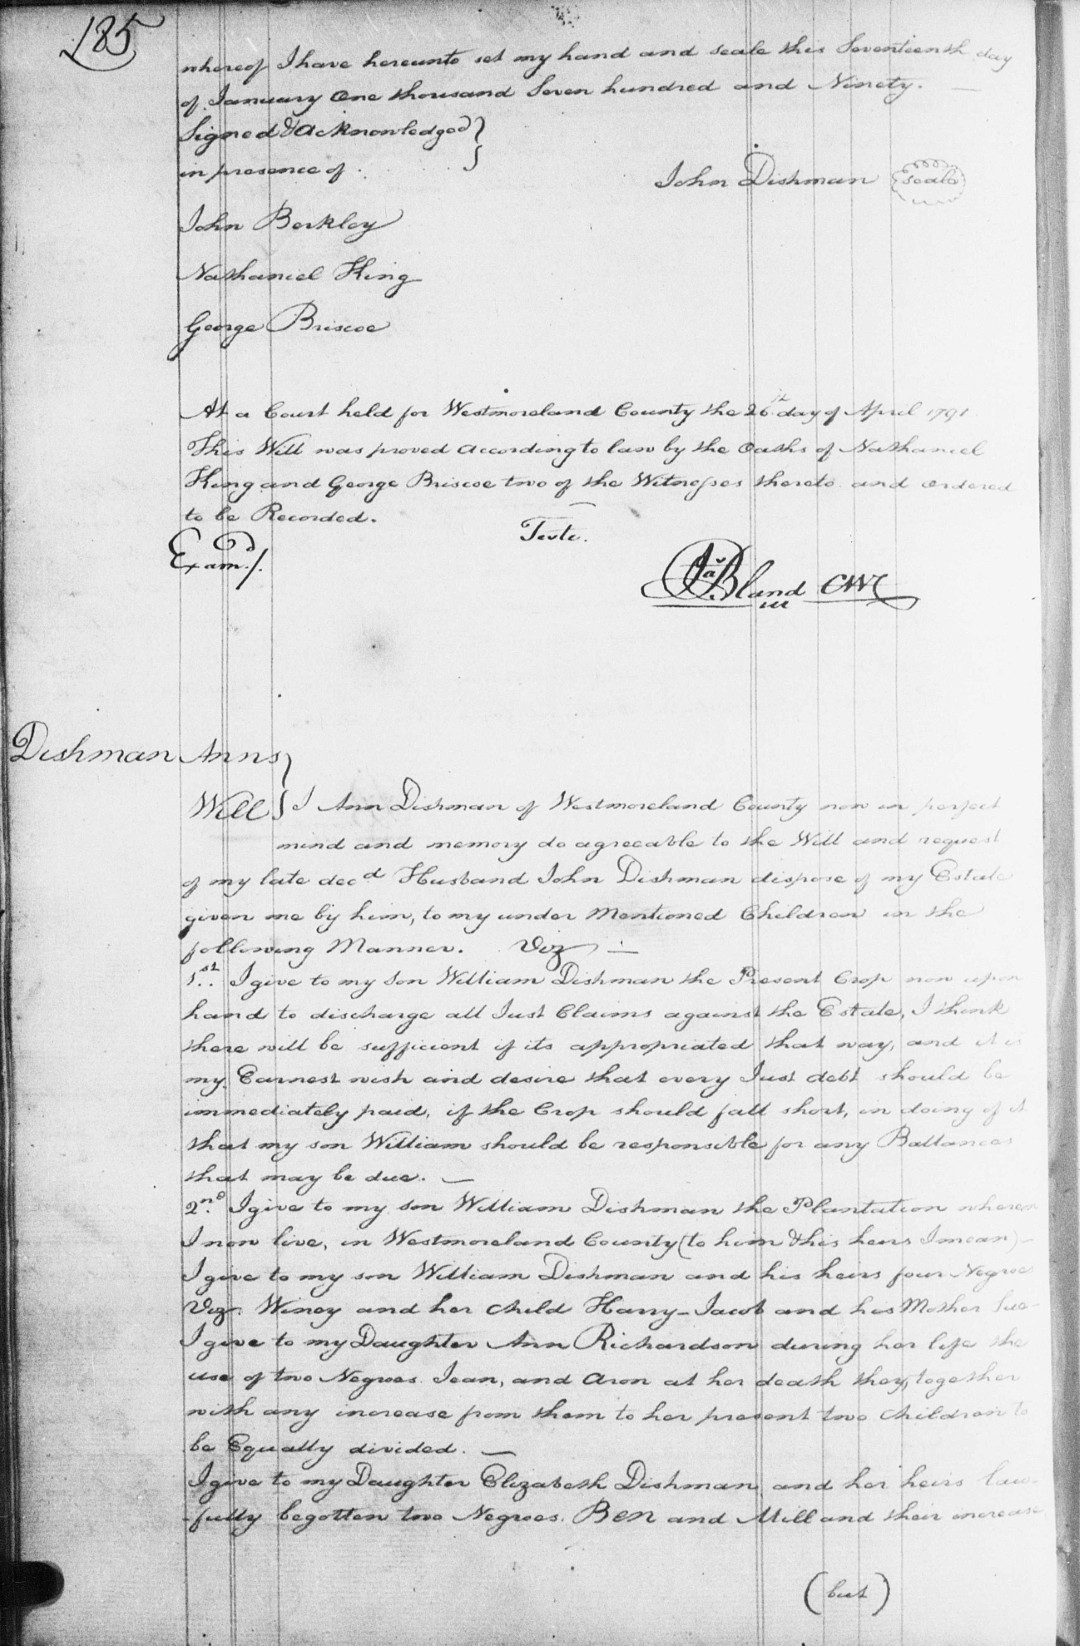 185
whereof I have hereunto set my hand and seale this Seventeenth day
of January One thousand Seven hundred and Ninety.
Signed & Acknowledged }
in presence of
John Dishman seale
John Berkley
Nathaniel King
George Briscoe
At a Court held for Westmoreland County the 26th day of April 1791
This Will was proved according to law by the Oaths of Nathaniel
King and George Briscoe two of the Witnesses thereto and ordered
to be Recorded.
Teste.
Examd./.
Jas Bland CWC
Dishman Anns }
Will } I Ann Dishman of Westmoreland County now in perfect
mind and memory do agreeable to the Will and request
of my late decd Husband John Dishman dispose of my Estate
given me by him, to my under Mentioned Children in the
following Manner. Viz —
1st. I give to my Son William Dishman the Present Crop now upon
hand to discharge all Just Claims against the Estate, I think
there will be sufficient if its appropriated that way, and it is
my Earnest wish and desire that every Just debt should be
immediately paid, if the Crop should fall short, in doing of it
that my son William should be responsible for any Ballances
that may be due. —
2nd. I give to my son William Dishman the Plantation whereon
I now live, in Westmoreland County (to him & his heirs I mean) –
I give to my son William Dishman and his heirs four Negroes
Viz. Winey and her child Harry – Jacob and his Mother Sue –
I give to my Daughter Ann Richardson during her life the
use of two Negroes Jean, and Aron at her death they, together
with any increase from them to her present two children to
be Equally divided. —
I give to my Daughter Elizabeth Dishman and her heirs law-
-fully begotten two Negroes. Ben and Mill and their increase
(but)